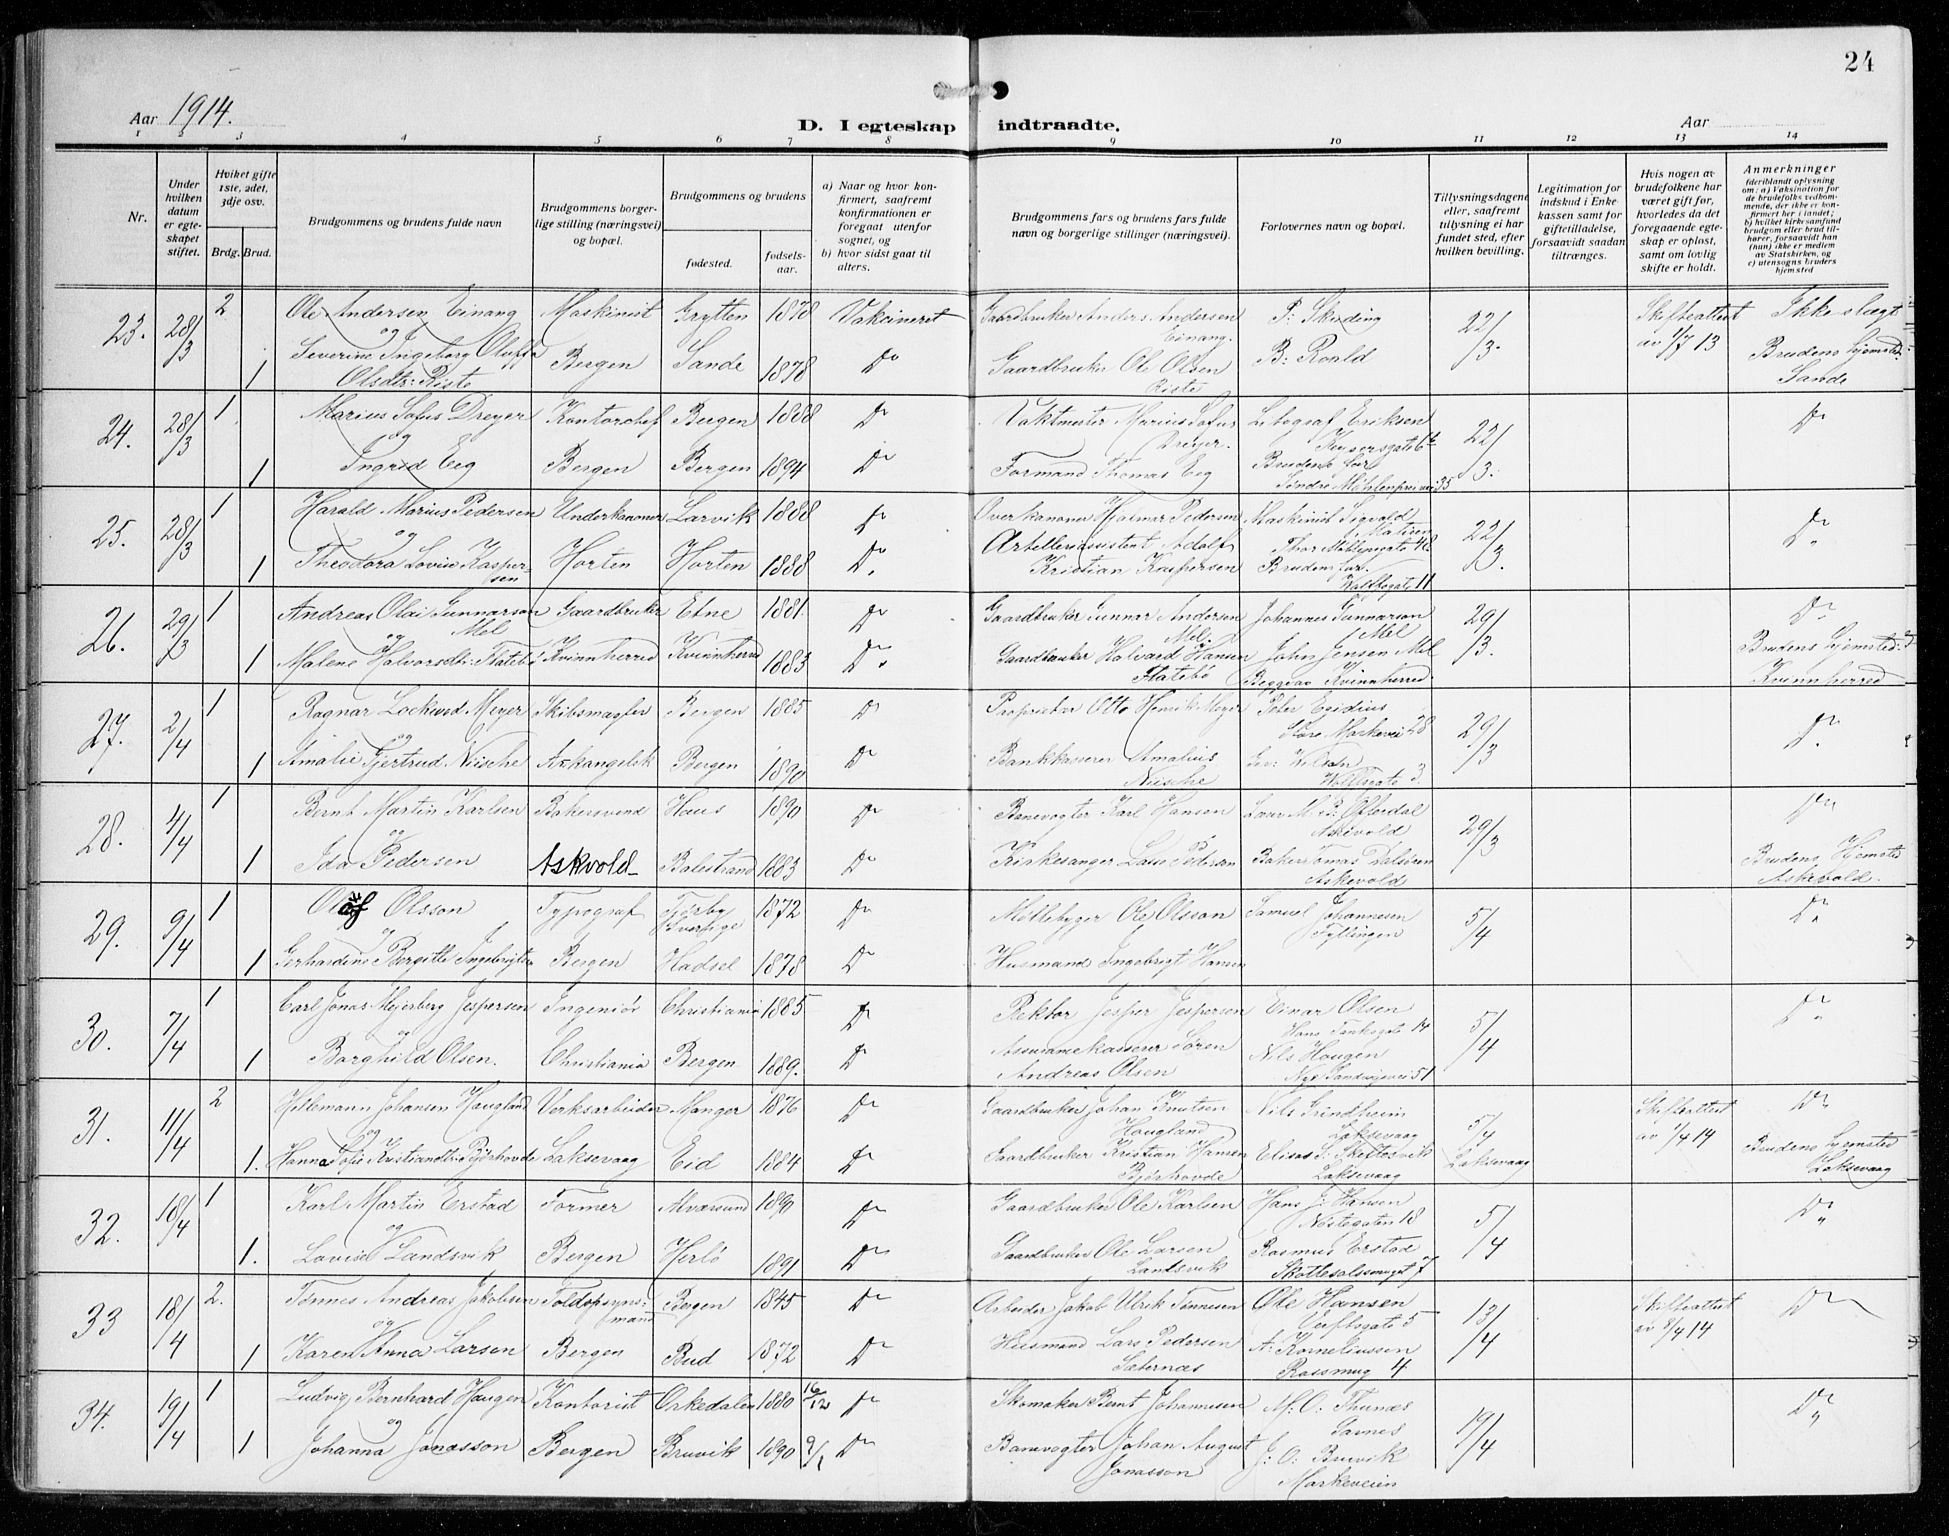 24
Aar 1914.
D. I egteskap indtraadte.
Aar
1 2 3 4 5 6 7 8 9 10 11 12 13 14
Nr.
Under hvilken datum er egteskapet stiftet.
Hvilket gifte 1ste, 2det, 3dje osv.
Brdg. Brud.
Brudgommens og brudens fulde navn
Brudgommens borgerlige stilling (næringsvei) og bopæl.
Brudgommens og brudens
fødested.
fødselsaar.
a) Naar og hvor konfirmert, saafremt konfirmationen er foregaat utenfor sognet, og
b) hvor sidst gaat til alters.
Brudgommens fars og brudens fars fulde navn og borgerlige stillinger (næringsvei).
Forlovernes navn og bopæl.
Tillysningsdagene eller, saafremt tillysning ei har fundet sted, efter hvilken bevilling.
Legitimation for indskud i Enkekassen samt for giftetilladelse, forsaavidt saadan tiltrænges.
Hvis nogen av brudefolkene har været gift før, hvorledes da det foregaaende egteskap er opløst, samt om lovlig skifte er holdt.
Anmerkninger
(deriblandt oplysning om: a) Vaksination for de brudefolks vedkommende, der ikke er konfirmert her i landet; b) hvilket kirkesamfund brudgom eller brud tilhører, forsaavidt han (hun) ikke er medlem av Statskirken, og c) utensogns bruders hjemsted
23. 28/3 2 Ole Andersen Einang Maskinist Grytten 1878 Vakcineret Gaardbruker Anders Andersen Einang. P: Skinding 22/3. Skifteattest av 1/7 13 Ikke slegt
og
1 Severine Ingeborg Oluffa Olsdtr: Riste Bergen Sande 1878 Do Gaardbruker Ole Olsen Riste B: Roald Brudens hjemsted Sande
24. 28/3 1 Marius Sofus Dreyer Kontorchef Bergen 1888 Do Vaktmester Marius Sofus Dreyer. Litograf Eriksen 22/3. Do
og
1 Ingrid Eeg Bergen Bergen 1894 Do Formand Thomas Eeg Brudens far Søndre Möhlenpris 35
25. 28/3 1 Harald Marius Pedersen Underkanoner Larvik 1888 Do Overkanoner Hjalmar Pedersen Maskinist Sigvald Thor Möhlensgate 48 22/3. Do
og
1 Theodora Lovise Kaspersen Horten Horten 1888 Do. Artelleriassistent Adolf Kristian Kaspersen Brudens far. 11
26. 29/3 1 Andreas Olai Gunnarson Mel Gaardbruker Etne 1881 Do Gaardbruker Gunnar Andersen Mel. Johannes Gunnarson Mel 29/3. Do
og
1 Malene Halvorsdtr: Flatebö Kvinnherred Kvinnherred 1883 Do. Gaardbruker Halvard Hansen Flatebö John Jensen Mel Begge av Kvinnherred Brudens hjemsted: Kvinnherred
27. 2/4 1 Ragnar Lockend Meyer Skibsmægler Bergen 1885 Do Proprietær Otto Henrik Meyer Peter Egidius Store Markevei 28 29/3 Do
og
1 Amalie Gjertrud Nische Arkangelsk Bergen 1890 Do Bankkasserer Amalius Nische
28. 4/4 1 Bernt Martin Karlsen Bakersvend Haus 1890 Do Banevogter Karl Hansen Laur M. B: Offerdal Askevold 29/3 Do
og
1 Ida Pedersen Askvold Balestrand 1883 Do Kirkesanger Lasse Pedersen Baker Tomas Dalsören Askevold Brudens Hjemsted Askevold.
29. 9/4 1 Olof Olsson Typograf Sverige 1872 Do Møllebygger Ole Olsson Samuel Johannesen Fyllingen 5/4 Do
og
1 Gerhardine Bergitte Ingebrigtsen Bergen Hadsel 1878 Do Husmand Ingebrigt Hansen
30. 7/4 1 Carl Jonas Mejerberg Jespersen Ingeniör Christiania 1885 Do Rektor Jesper Jespersen Einar Olsen Hans Tanksgate 14 5/4 Do
og
1 Borghild Olsen. Christiania Bergen 1889. Do Assurancekasserer Sören Andreas Olsen Nils Haugen Nye Sandviksvei 51
31. 11/4 2 Hillemann Johansen Haugland Verksarbeider Manger 1876 Do Gaardbruker Johan Knutsen Haugland Nils Grindheim Laksevaag 5/4 Laksevaag Skifteattest av 1/4 14 Do
og
1. Hanna Sofie Kristiansdtr: Björhovde Laksevaag Eid 1884 Do Gaardbruker Kristian Hansen Björhovde Elias J. Skottesvik Laksevaag Brudens hjemsted Laksevaag
32. 18/4 1 Karl Martin Erstad Former Alværsund 1890 Do Gaardbruker Ole Karlsen Hans J. Hansen Nöstegaten 18 5/4 Do
og
1. Lovise Landsvik Bergen Herlö 1891 Do Gaardbruker Ole Larsen Landsvik Rasmus Erstad Skottesalssmuget 7
33 18/4 2. Tönnes Andreas Jakobsen Toldopsynsmand Bergen 1845 Do Arbeider Jakob Ulrik Tönnesen Ole Hansen Verftsgate 5 13/4 Skifteattest av 8/4 14 Do
og
1 Karen Anna Larsen Bergen Bud 1872 Do Husmand Lars Pedersen Sæternæs A: Korneliussen Rossmug 4
34. 19/4 1 Ludvig Bernhard Haugen Kontorist Orkedalen 1880 16/12 Do Skomaker Bernt Johannesen M: O: Thunæs 19/4 Do
og
1 Johanna Jonasson Bergen Bruvik 1890 9/1 Do Banevogter Johan August Jonasson J: O: Bruvik Markeveien